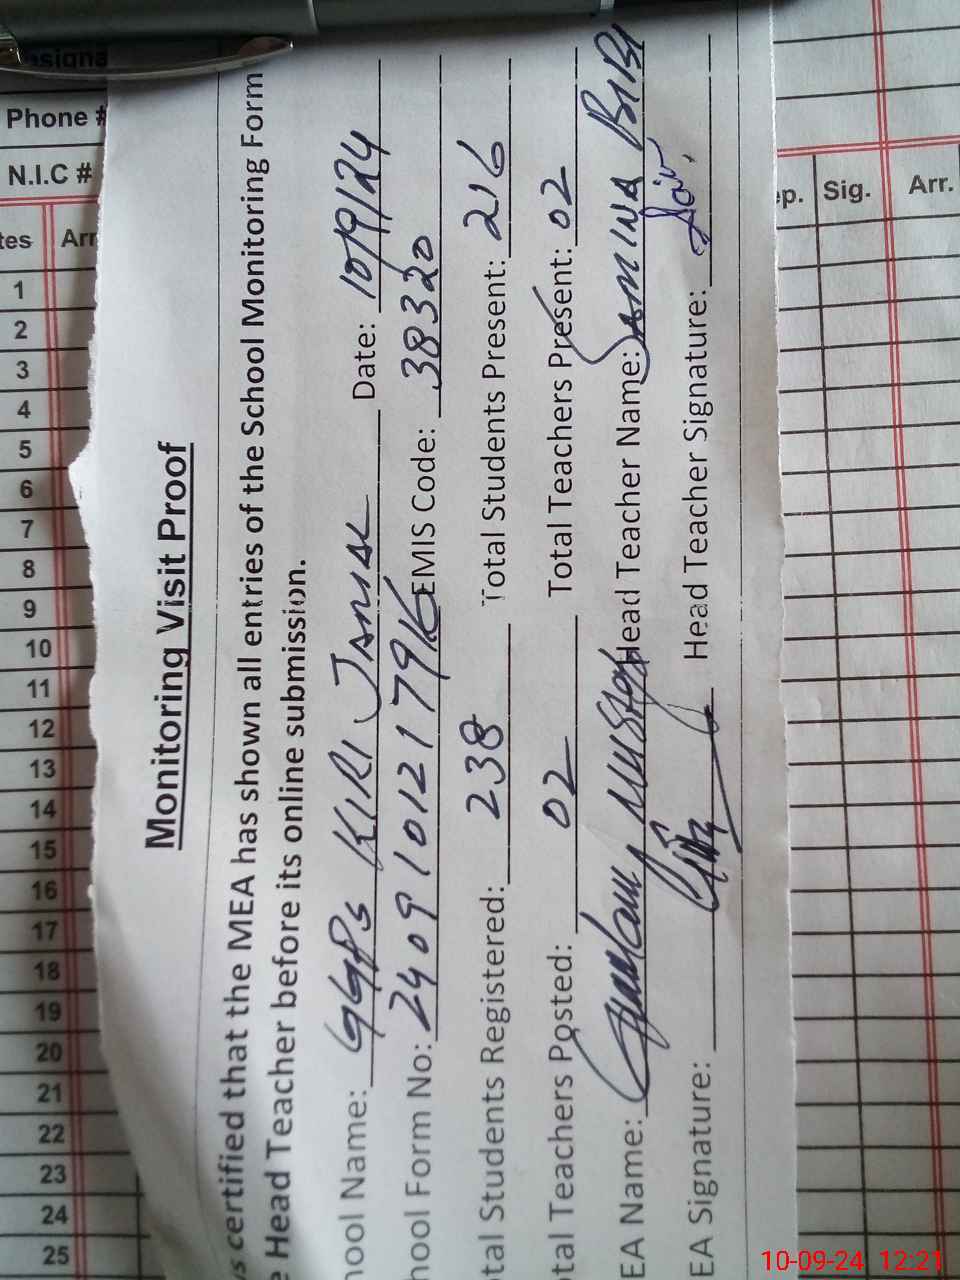 Monitoring Visit Proof
s certified that the MEA has shown all entries of the School Monitoring Form
e Head Teacher before its online submission.
hool Name: GGPS KIRI JAMAL Date: 10/9/24
hool Form No: 2409101217916 EMIS Code: 38320
otal Students Registered: 238 Total Students Present: 216
otal Teachers Posted: 02 Total Teachers Present: 02
EA Name: Ghulam Mustafa Head Teacher Name: SAMINA BIBI
EA Signature: Head Teacher Signature:
esigna
Phone #
N.I.C #
tes Arr
ep. Sig. Arr.
1
2
3
4
5
6
7
8
9
10
11
12
13
14
15
16
17
18
19
20
21
22
23
24
25
10-09-24 12:21